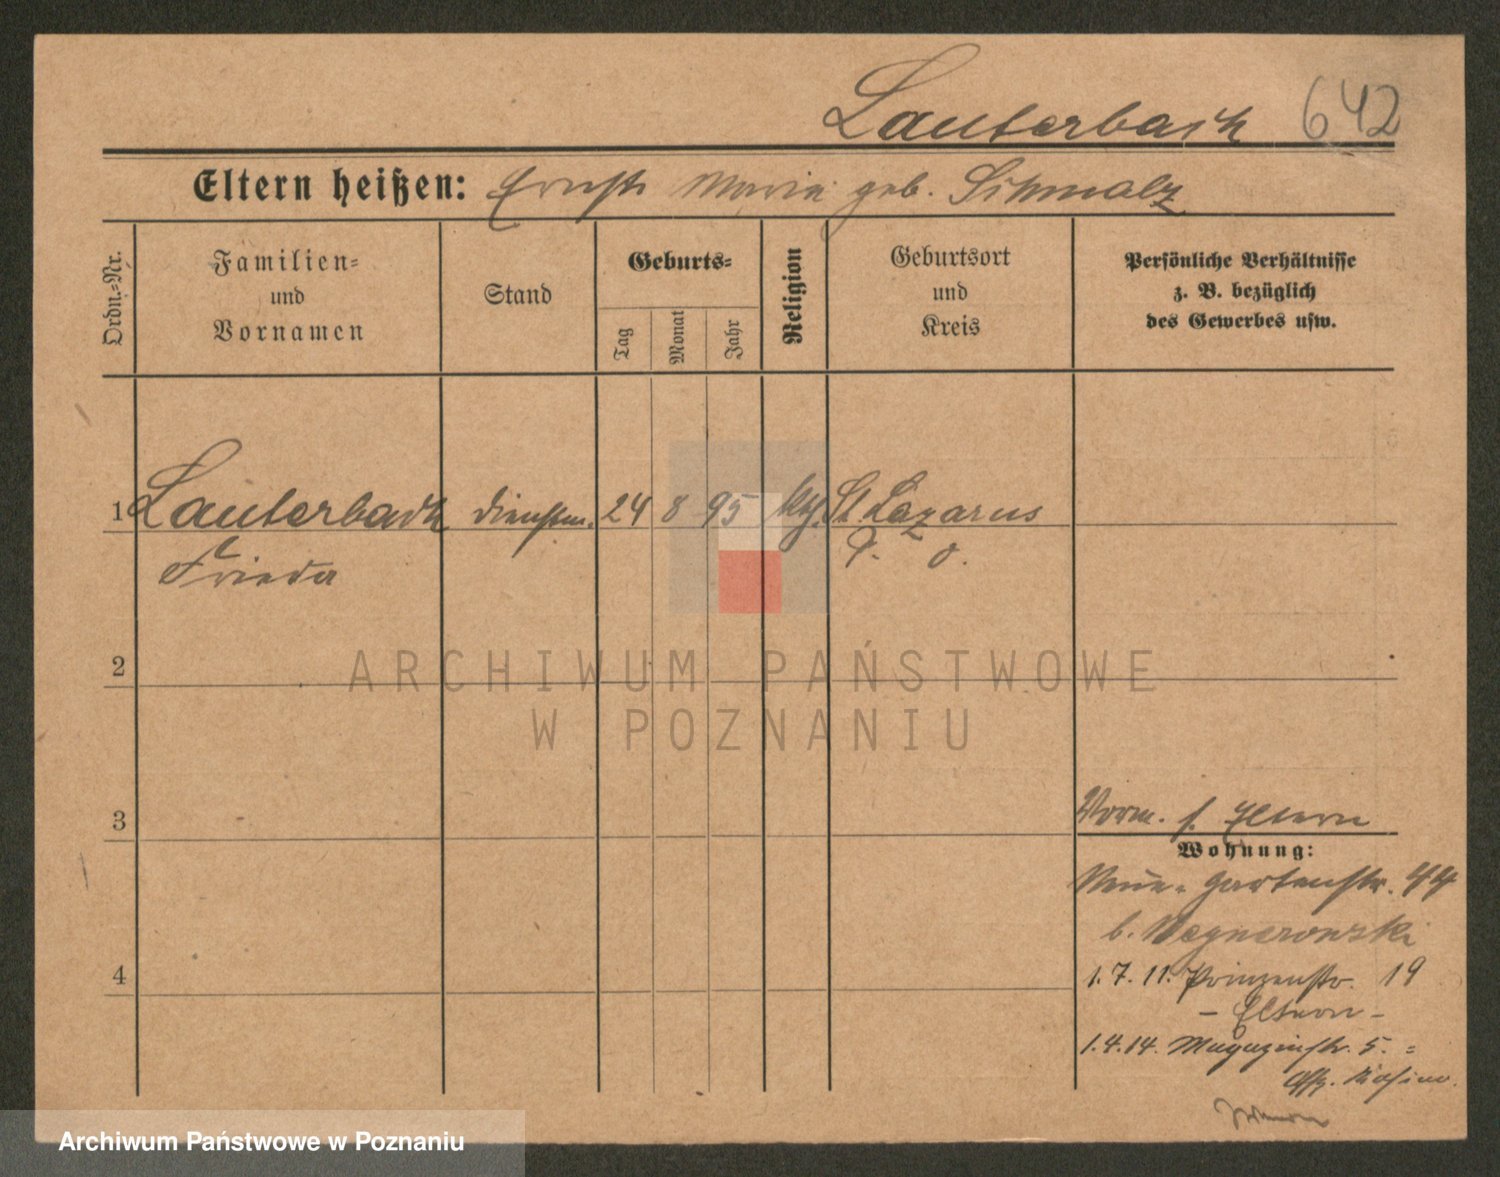 Lauterbach 642
Eltern heißen: Ernst Maria geb. Schmalz
Ordn.-Nr.
Familien-
und
Vornamen
Stand
Geburts-
Tag
Monat
Jahr
Religion
Geburtsort
und
Kreis
Persönliche Verhältnisse
z. B. bezüglich
des Gewerbes usw.
1 Lauterbach dienstm. 24 8 95 St. Lazarus
Frieda P. O.
2
3
4
Vorm. s. Eltern
Wohnung:
Neue Gartenstr. 44
b. Wegnerowski
1.7.11. Prinzenstr. 19
- Eltern -
1.4.14. Magazinstr. 5. =
Offz. Kasino.
ARCHIWUM PAŃSTWOWE
W POZNANIU
Archiwum Państwowe w Poznaniu